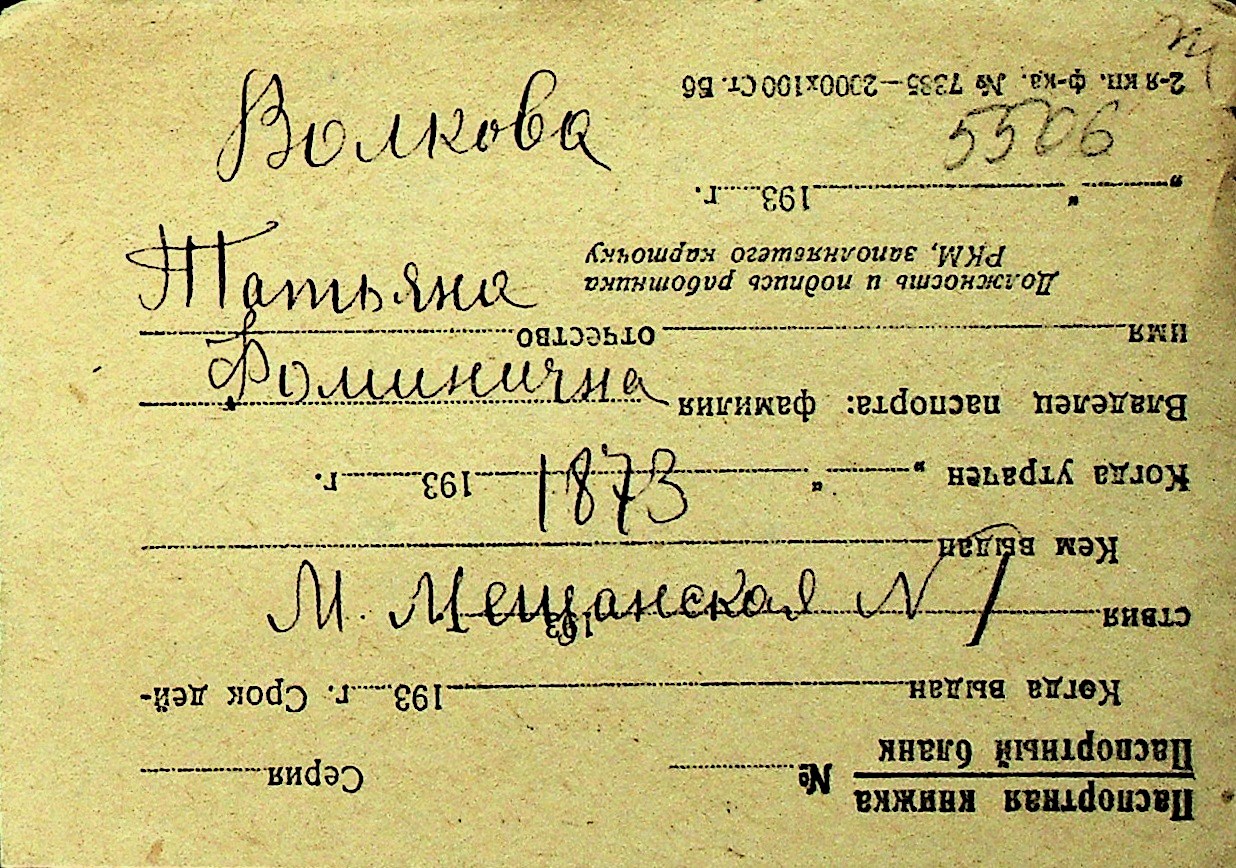 Волкова
5506
Татьяна
Фоминична
1873
М. Мещанская N 1
Паспортная книжка
Паспортный бланк
№ Серия
Когда выдан 193 г. Срок дей-
ствия 193
Кем выдан
Когда утрачен „ “ 193 г.
Владелец паспорта: фамилия
имя отчество
Должность и подпись работника
РКМ, заполнявшего карточку
„ “ 193 г.
2-я кн. ф-ка. № 7335—2000х100 Ст. Вб